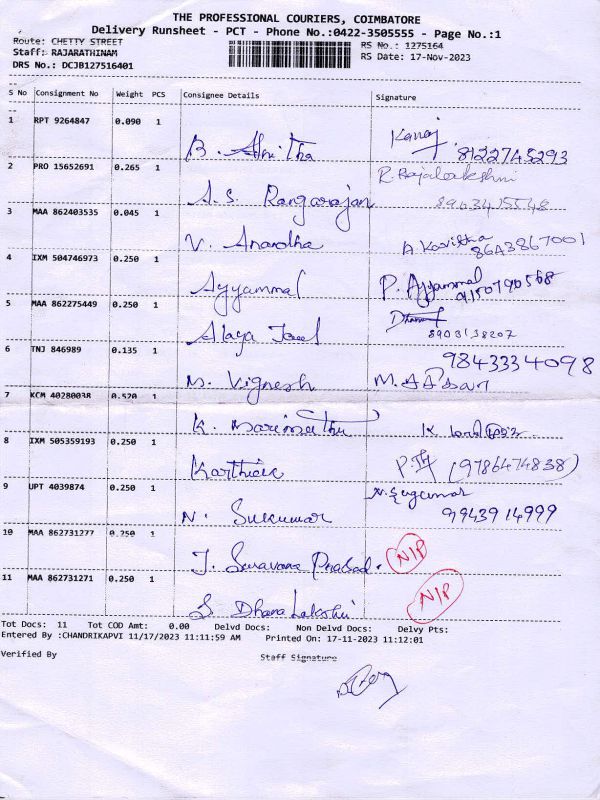 THE PROFESSIONAL COURIERS, COIMBATORE
Delivery Runsheet - PCT - Phone No.:0422-3505555 - Page No.:1
Route: CHETTY STREET
Staff: RAJARATHINAM
DRS No.: DCJB127516401
RS No.: 1275164
RS Date: 17-Nov-2023
S No Consignment No Weight PCS Consignee Details Signature
1 RPT 9264847 0.090 1 B. 8122745293
2 PRO 15652691 0.265 1 A.S. Rangarajan R. Rajalakshmi
3 MAA 862403535 0.045 1 V. Anandha A Kavitha 8643867001
4 IXM 504746973 0.250 1 Ayyammal P. Ayyammal 9150790568
5 MAA 862275449 0.250 1 8903138207
6 TNJ 846989 0.135 1 M. Vignesh 9843334098
7 KCM 40280038 0.520 1 K. Marimuthu
8 IXM 505359193 0.250 1 Karthick (9786474838)
9 UPT 4039874 0.250 1 N. Sukumar N. Sugumar 9943914999
10 MAA 862731277 0.250 1 J. Saravana Prasad. N/P
11 MAA 862731271 0.250 1 S Dhana Lakshmi N/P
Tot Docs: 11 Tot COD Amt: 0.00 Delvd Docs: Non Delvd Docs: Delvy Pts:
Entered By :CHANDRIKAPVI 11/17/2023 11:11:59 AM Printed On: 17-11-2023 11:12:01
Verified By Staff Signature